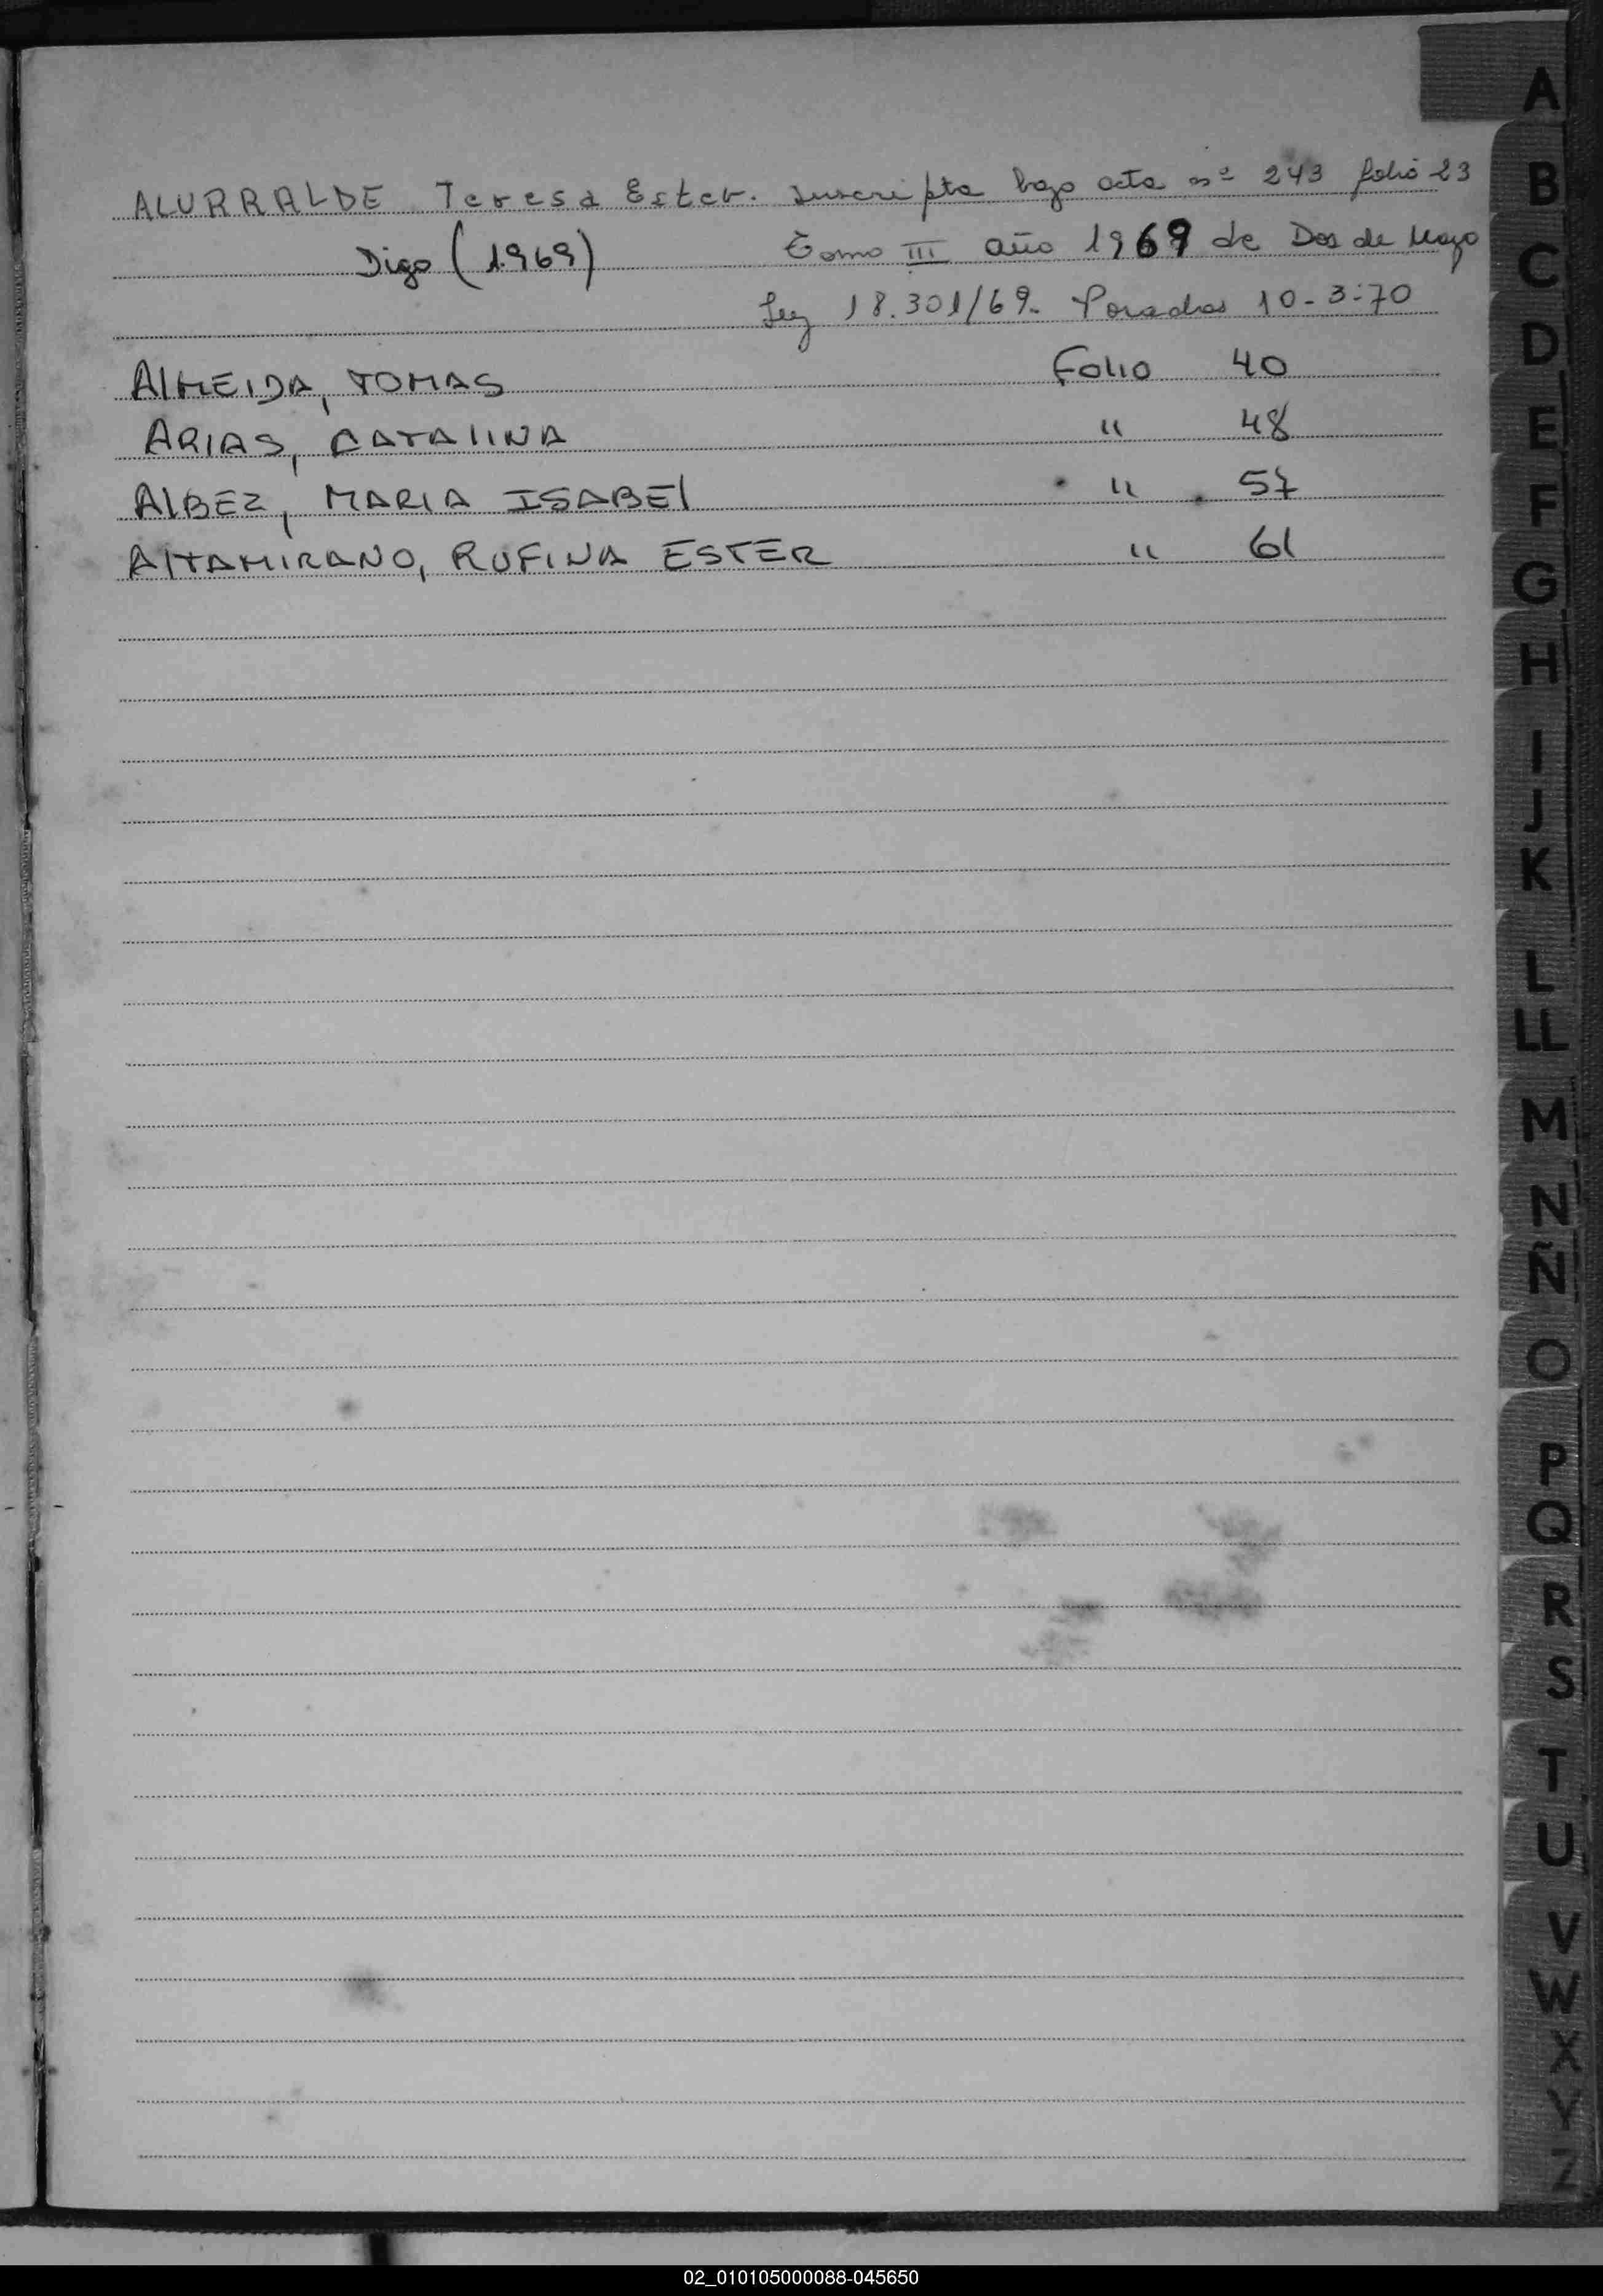 A
ALURRALDE Teresa Ester. Inscripta bajo acta nº 243 folio 23
Digo (1969) Tomo III año 1969 de Dos de Mayo
Ley 18.301/69. Posadas 10-3-70
ALMEIDA, TOMAS Folio 40
ARIAS, CATALINA " 48
ALBEZ, MARIA ISABEL " 57
ALTAMIRANO, RUFINA ESTER " 61
B
C
D
E
F
G
H
I
J
K
L
LL
M
N
Ñ
O
P
Q
R
S
T
U
V
W
X
Y
Z
02_010105000088-045650